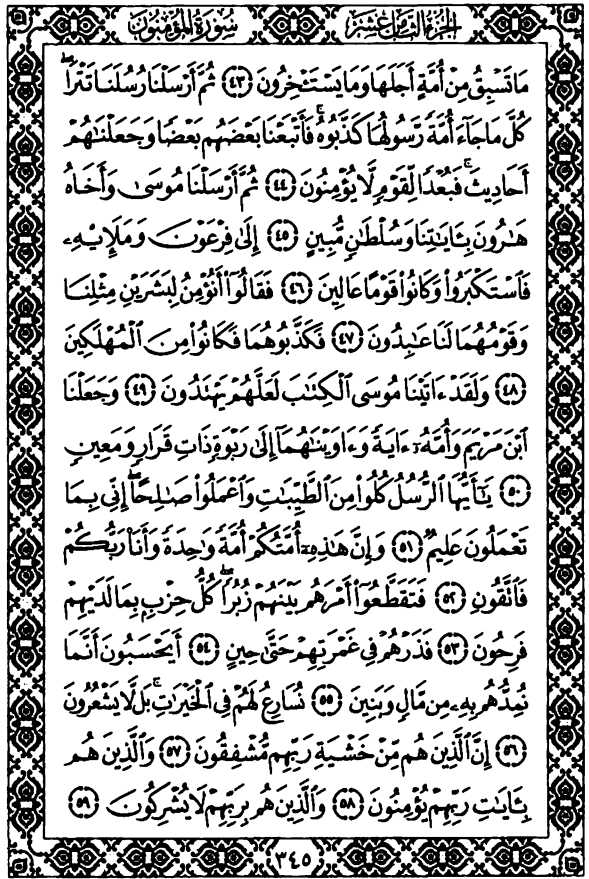 الجزء الثامن عشر سورة المؤمنون
مَا تَسْبِقُ مِنْ أُمَّةٍ أَجَلَهَا وَمَا يَسْتَـْٔخِرُونَ ﴿٤٣﴾ ثُمَّ أَرْسَلْنَا رُسُلَنَا تَتْرَا ۖ
كُلَّ مَا جَآءَ أُمَّةً رَّسُولُهَا كَذَّبُوهُ ۚ فَأَتْبَعْنَا بَعْضَهُم بَعْضًا وَجَعَلْنَٰهُمْ
أَحَادِيثَ ۚ فَبُعْدًا لِّقَوْمٍ لَّا يُؤْمِنُونَ ﴿٤٤﴾ ثُمَّ أَرْسَلْنَا مُوسَىٰ وَأَخَاهُ
هَٰرُونَ بِـَٔايَٰتِنَا وَسُلْطَٰنٍ مُّبِينٍ ﴿٤٥﴾ إِلَىٰ فِرْعَوْنَ وَمَلَإِيْهِۦ
فَٱسْتَكْبَرُوا۟ وَكَانُوا۟ قَوْمًا عَالِينَ ﴿٤٦﴾ فَقَالُوٓا۟ أَنُؤْمِنُ لِبَشَرَيْنِ مِثْلِنَا
وَقَوْمُهُمَا لَنَا عَٰبِدُونَ ﴿٤٧﴾ فَكَذَّبُوهُمَا فَكَانُوا۟ مِنَ ٱلْمُهْلَكِينَ
﴿٤٨﴾ وَلَقَدْ ءَاتَيْنَا مُوسَى ٱلْكِتَٰبَ لَعَلَّهُمْ يَهْتَدُونَ ﴿٤٩﴾ وَجَعَلْنَا
ٱبْنَ مَرْيَمَ وَأُمَّهُۥٓ ءَايَةً وَءَاوَيْنَٰهُمَآ إِلَىٰ رَبْوَةٍ ذَاتِ قَرَارٍ وَمَعِينٍ
﴿٥٠﴾ يَٰٓأَيُّهَا ٱلرُّسُلُ كُلُوا۟ مِنَ ٱلطَّيِّبَٰتِ وَٱعْمَلُوا۟ صَٰلِحًا ۖ إِنِّى بِمَا
تَعْمَلُونَ عَلِيمٌ ﴿٥١﴾ وَإِنَّ هَٰذِهِۦٓ أُمَّتُكُمْ أُمَّةً وَٰحِدَةً وَأَنَا۠ رَبُّكُمْ
فَٱتَّقُونِ ﴿٥٢﴾ فَتَقَطَّعُوٓا۟ أَمْرَهُم بَيْنَهُمْ زُبُرًا ۖ كُلُّ حِزْبٍۭ بِمَا لَدَيْهِمْ
فَرِحُونَ ﴿٥٣﴾ فَذَرْهُمْ فِى غَمْرَتِهِمْ حَتَّىٰ حِينٍ ﴿٥٤﴾ أَيَحْسَبُونَ أَنَّمَا
نُمِدُّهُم بِهِۦ مِن مَّالٍ وَبَنِينَ ﴿٥٥﴾ نُسَارِعُ لَهُمْ فِى ٱلْخَيْرَٰتِ ۚ بَل لَّا يَشْعُرُونَ
﴿٥٦﴾ إِنَّ ٱلَّذِينَ هُم مِّنْ خَشْيَةِ رَبِّهِم مُّشْفِقُونَ ﴿٥٧﴾ وَٱلَّذِينَ هُم
بِـَٔايَٰتِ رَبِّهِمْ يُؤْمِنُونَ ﴿٥٨﴾ وَٱلَّذِينَ هُم بِرَبِّهِمْ لَا يُشْرِكُونَ ﴿٥٩﴾
٣٤٥